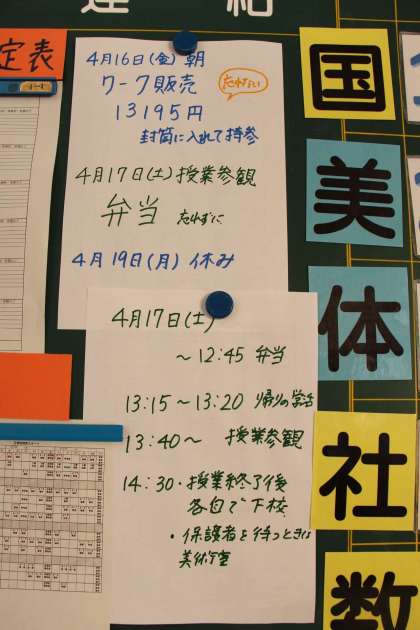 連絡
定表
4月16日(金)朝
ワーク販売
忘れない
13195円
封筒に入れて持参
4月17日(土)授業参観
弁当 忘れずに
4月19日(月)休み
4月17日(土)
～12:45 弁当
13:15～13:20 帰りの学活
13:40～ 授業参観
14:30・授業終了後
各自で下校
・保護者を待つときは
美術室
国
美
体
社
数